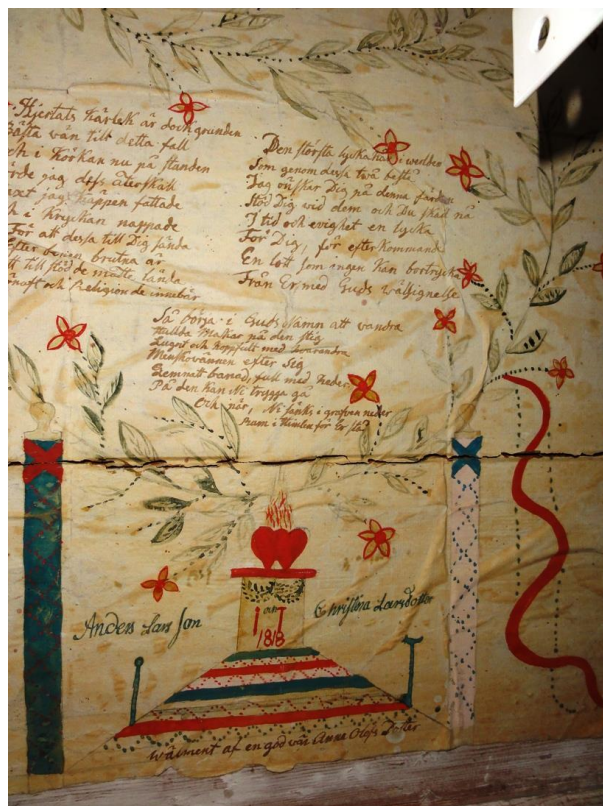 Hjertats Kärlek är dock grunden
Bästa wän till detta fall
och i Körkan nu på stunden
jag dess återskall
jag knappen fattade
i kryckan nappade
För att dessa till Dig sända
Efter bönen brutna är
till stöd de måtte lända
och Religion de innebär
Den största lycka här i werlden
Som genom dessa två bestå
Jag önskar Dig på denna färden
Stöd Dig wid dem och Du skall nå
I tid och evighet en lycka
För Dig, för efterkommande
En Lott som ingen kan bortrycka
Från Er med Guds wällsignelse
Så börja i Guds Namn att wandra
Hullda Makar på den stig
Lugnt och hoppfullt med hwarandra
Menskowännen efter sig
Lemnat baned, full med heder
På den kan Ni trygga gå
Och när, Ni sänks i grafven neder
Rum i Himlen för Er stå
Anders Lars Son
Christina Larsdotter
1818
wälment af en god wän Anna Olofs Dotter